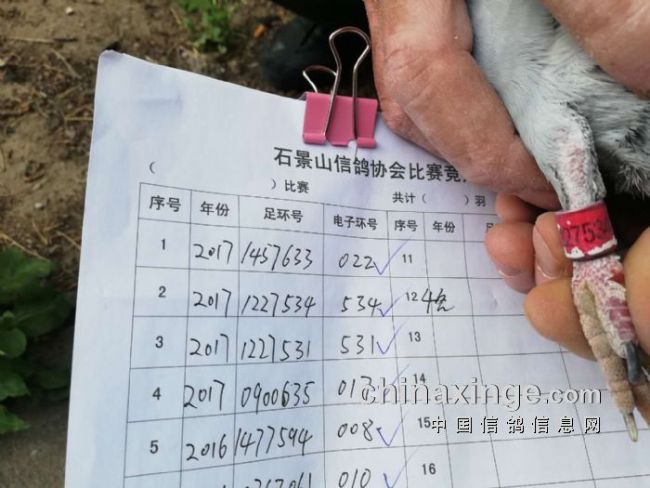 石景山信鸽协会比赛竞
( )比赛 共计( )羽
序号 年份 足环号 电子环号 序号 年份 足
1 2017 1457633 022 ✓ 11
2 2017 1227534 534 ✓ 12
3 2017 1227531 531 ✓ 13
4 2017 0900635 017 14
5 2016 1477594 008 ✓ 15
010 ✓ 16
2753
chinaxinge.com
中国信鸽信息网